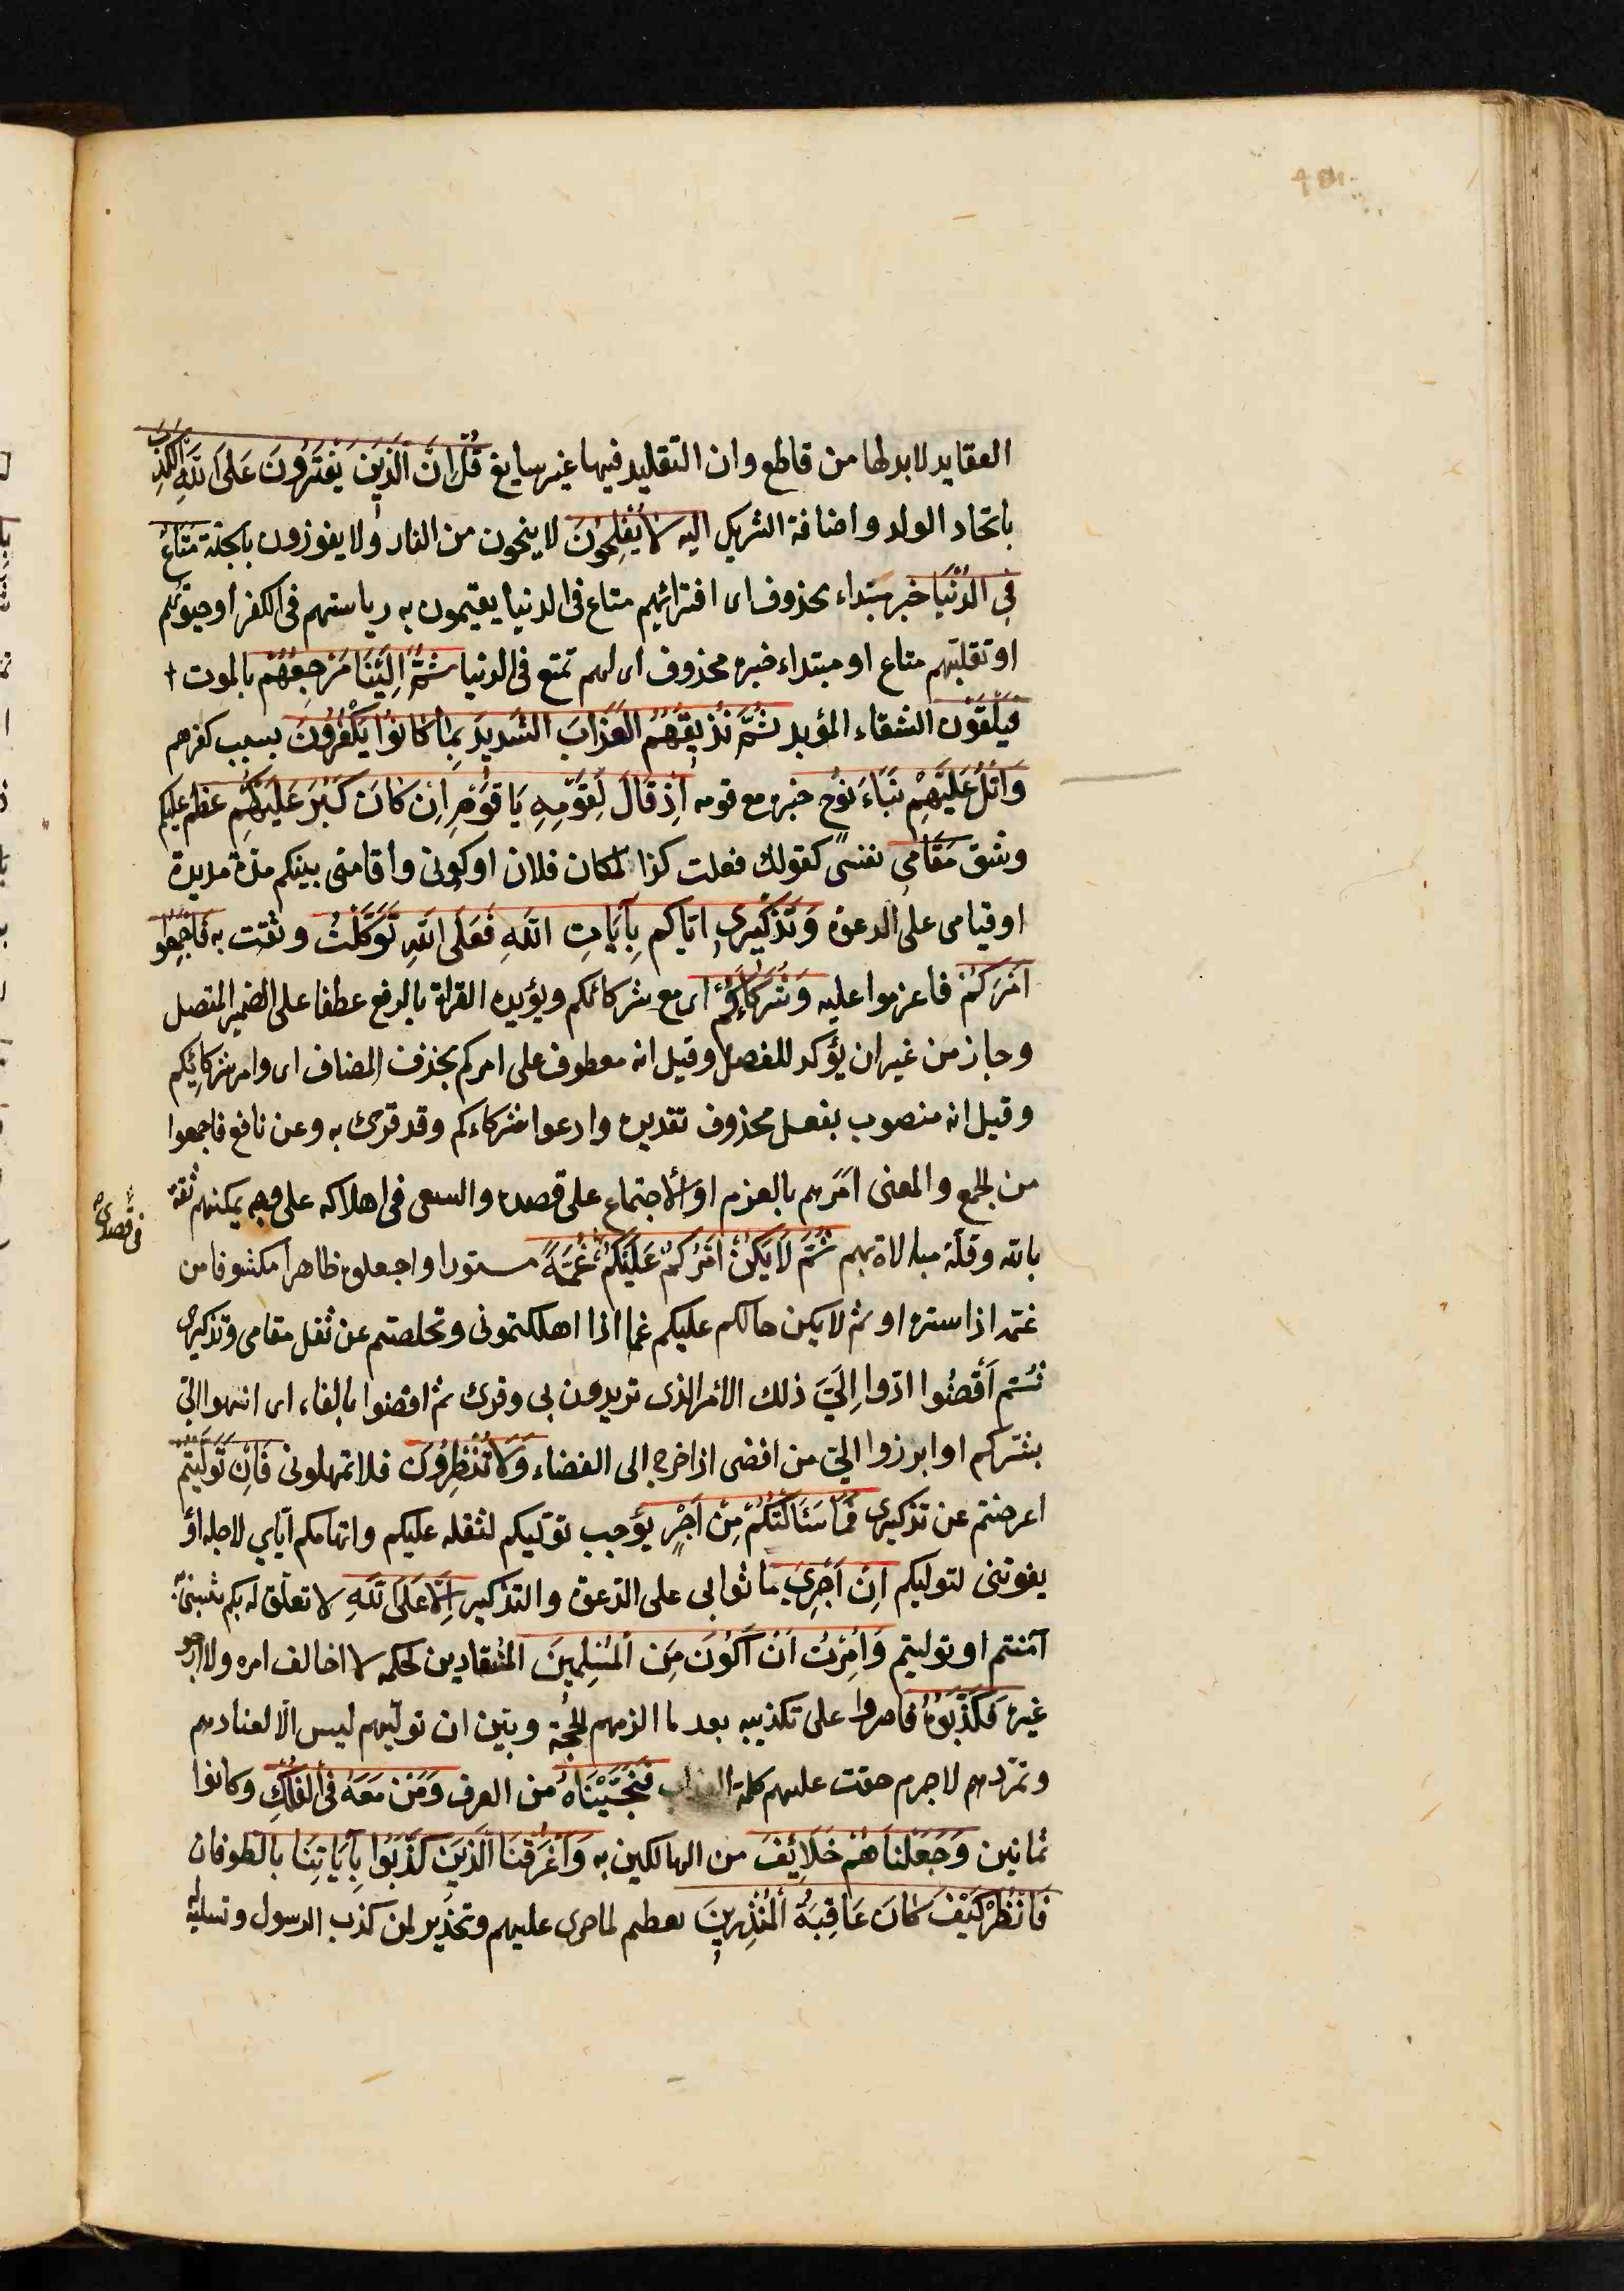 العقايد لابد لها من قاطع وان التقليد فيها غير سايغ قُلْ اِنَّ الَّذِينَ يَفْتَرُونَ عَلَى اللّٰهِ الْكَذِبَ
باتخاد الولد واضافة الشريك اليه لَا يُفْلِحُونَ لا ينجون من النار ولا يفوزون بالجنة مَتَاعٌ
فِي الدُّنْيَا خبر مبتداء محذوف اى افترائهم متاع فى الدنيا يقيمون به رياستهم فى الكفر او حيوتهم
او تقلبهم متاع او مبتداء خبره محذوف اى لهم تمتع فى الدنيا ثُمَّ اِلَيْنَا مَرْجِعُهُمْ بالموت
فيلقون الشقاء المؤبد ثُمَّ نُذِيقُهُمُ الْعَذَابَ الشَّدِيدَ بِمَا كَانُوا يَكْفُرُونَ بسبب كفرهم
وَاتْلُ عَلَيْهِمْ نَبَاءَ نُوحٍ خبره مع قومه اِذْ قَالَ لِقَوْمِهِ يَا قَوْمِ اِنْ كَانَ كَبُرَ عَلَيْكُمْ عظم عليكم
وشق مَقَامِي نفسى كقولك فعلت كذا لمكان فلان او كونى واقامتى بينكم مدة مديدة
او قيامى على الدعوة وَتَذْكِيرِى اياكم بِآيَاتِ اللّٰهِ فَعَلَى اللّٰهِ تَوَكَّلْتُ وثقت به فَاَجْمِعُوا
اَمْرَكُمْ فاعزموا عليه وَشُرَكَاءَكُمْ اى مع شركائكم ويؤيده القراة بالرفع عطفا على الضمير المتصل
وجاز من غير ان يؤكد للفصل وقيل انه معطوف على امركم بحذف المضاف اى وامر شركائكم
وقيل انه منصوب بفعل محذوف تقديره وادعوا شركاءكم وقد قرئ به وعن نافع فاجمعوا
من الجمع والمعنى امرهم بالعزم او الاجتماع على قصده والسعى فى اهلاكه على وجه يمكنهم ثقة
فى قصده
بالله وقلة مبالاة بهم ثُمَّ لَا يَكُنْ اَمْرُكُمْ عَلَيْكُمْ غُمَّةً مستورا واجعلوه ظاهرا مكشوفا من
غمه اذا ستره او ثم لا يكن حالكم عليكم غما اذا اهلكتمونى وتخلصتم عن ثقل مقامى وتذكيرى
ثُمَّ اقْضُوا ادّوا اِلَيَّ ذلك الامر الذى تريدون بى وقرئ ثم افضوا بالفاء اى انتهوا الىّ
بشركم او ابرزوا الىّ من افضى اذا خرج الى الفضاء وَلَا تُنْظِرُونِ فلا تمهلونى فَاِنْ تَوَلَّيْتُمْ
اعرضتم عن تذكيرى فَمَا سَئَالْتُكُمْ مِنْ اَجْرٍ يوجب توليكم لثقله عليكم واتهامكم اياى لاجله او
يفوتنى لتوليكم اِنْ اَجْرِيَ ما ثوابى على الدعوة والتذكير اِلَّا عَلَى اللّٰهِ لا تعلق له بكم يثيبنى به
آمنتم او توليتم وَاُمِرْتُ اَنْ اَكُونَ مِنَ الْمُسْلِمِينَ المنقادين لحكمه لا اخالف امره ولا ارجو
غيره فَكَذَّبُوهُ فاصروا على تكذيبه بعد ما الزمهم الحجة وبيّن ان توليهم ليس الا لعنادهم
وتمردهم لا جرم حقت عليهم كلمة العذاب فَنَجَّيْنَاهُ من الغرق وَمَنْ مَعَهُ فِي الْفُلْكِ وكانوا
ثمانين وَجَعَلْنَاهُمْ خَلَائِفَ من الهالكين به وَاَغْرَقْنَا الَّذِينَ كَذَّبُوا بِآيَاتِنَا بالطوفان
فَانْظُرْ كَيْفَ كَانَ عَاقِبَةُ الْمُنْذَرِينَ تعظيم لما جرى عليهم وتحذير لمن كذب الرسول وتسلية له